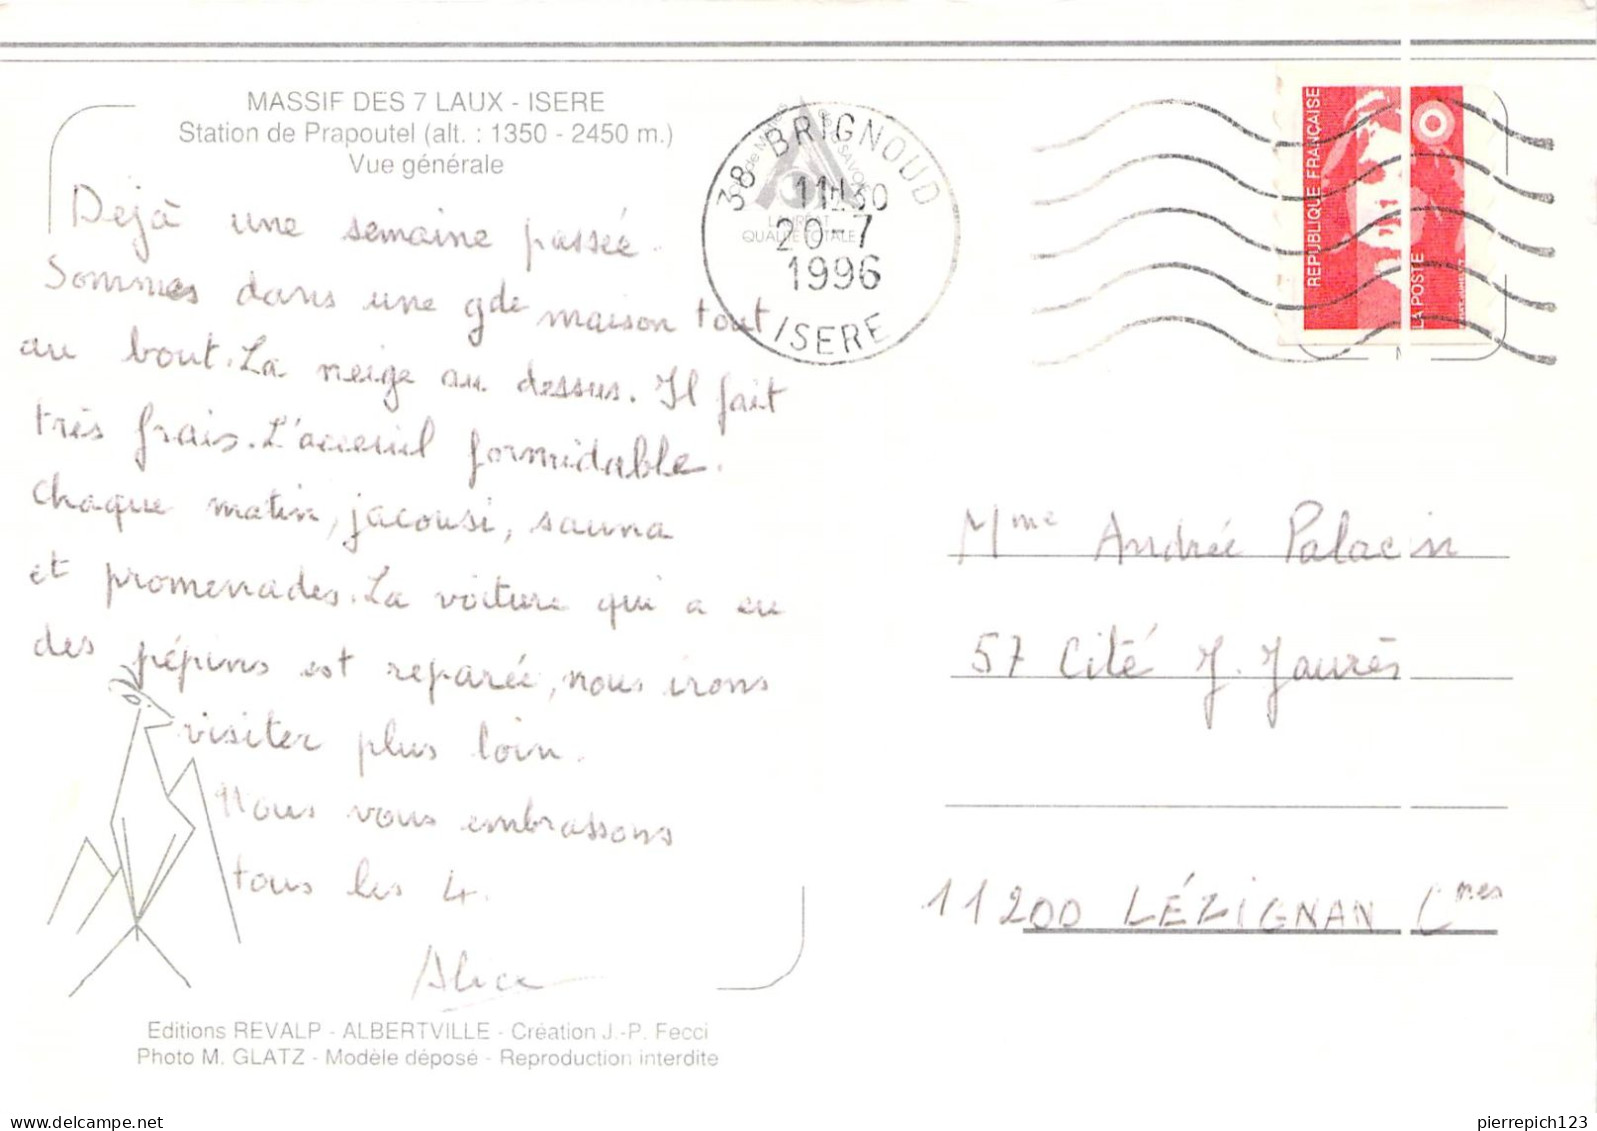 MASSIF DES 7 LAUX - ISERE
Station de Prapoutel (alt. : 1350 - 2450 m.)
Vue générale
Dejà une semaine passée.
Sommes dans une gde maison tout
au bout. La neige au dessus. Il fait
très frais. L'acceuil formidable.
Chaque matin, jacousi, sauna
et promenades. La voiture qui a eu
des pépins est reparée, nous irons
visiter plus loin.
Nous vous embrassons
tous les 4.
Alice
Editions REVALP - ALBERTVILLE - Création J.-P. Fecci
Photo M. GLATZ - Modèle déposé - Reproduction interdite
38 BRIGNOUD
11H30
20-7
1996
ISERE
LAUREAT
QUALITE TOTALE
REPUBLIQUE FRANÇAISE
LA POSTE
Mme Andrée Palacin
57 Cité J. Jaurès
11200 LÉZIGNAN Cres
delcampe.net
pierrepich123